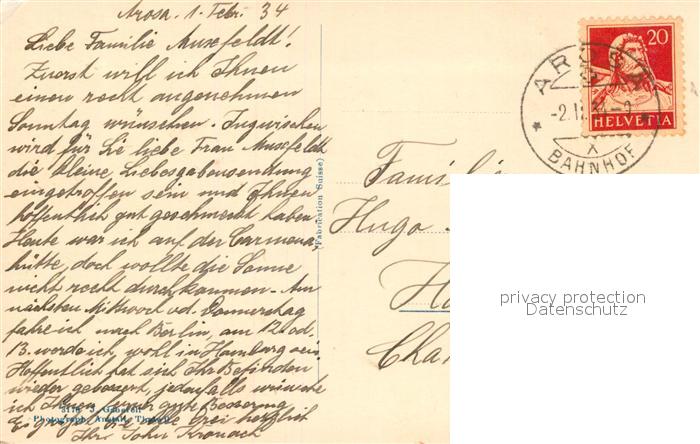 Arosa. 1. Febr. 34
Liebe Familie Muxfeldt!
Zuerst will ich Ihnen
einen recht angenehmen
Sonntag wünschen. Inzwischen
wird für Sie liebe Frau Muxfeldt
die kleine Liebesgabensendung
eingetroffen sein und Ihnen
hoffentlich gut geschmeckt haben.
Heute war ich auf der Carmenna
hütte, doch wollte die Sonne
nicht recht durchkommen. Am
nächsten Mittwoch od. Donnerstag
fahre ich nach Berlin, am 12. od.
13. werde ich wohl in Hamburg sein.
Hoffentlich hat sich Ihr Befinden
wieder gebessert, jedenfalls wünsche
ich Ihnen gute Besserung
herzlich
Ihr John
(Fabrication Suisse)
Photograph. Anstalt
20
HELVETIA
AROSA
-2.II.34-
BAHNHOF
X
Familie
Hugo
privacy protection
Datenschutz